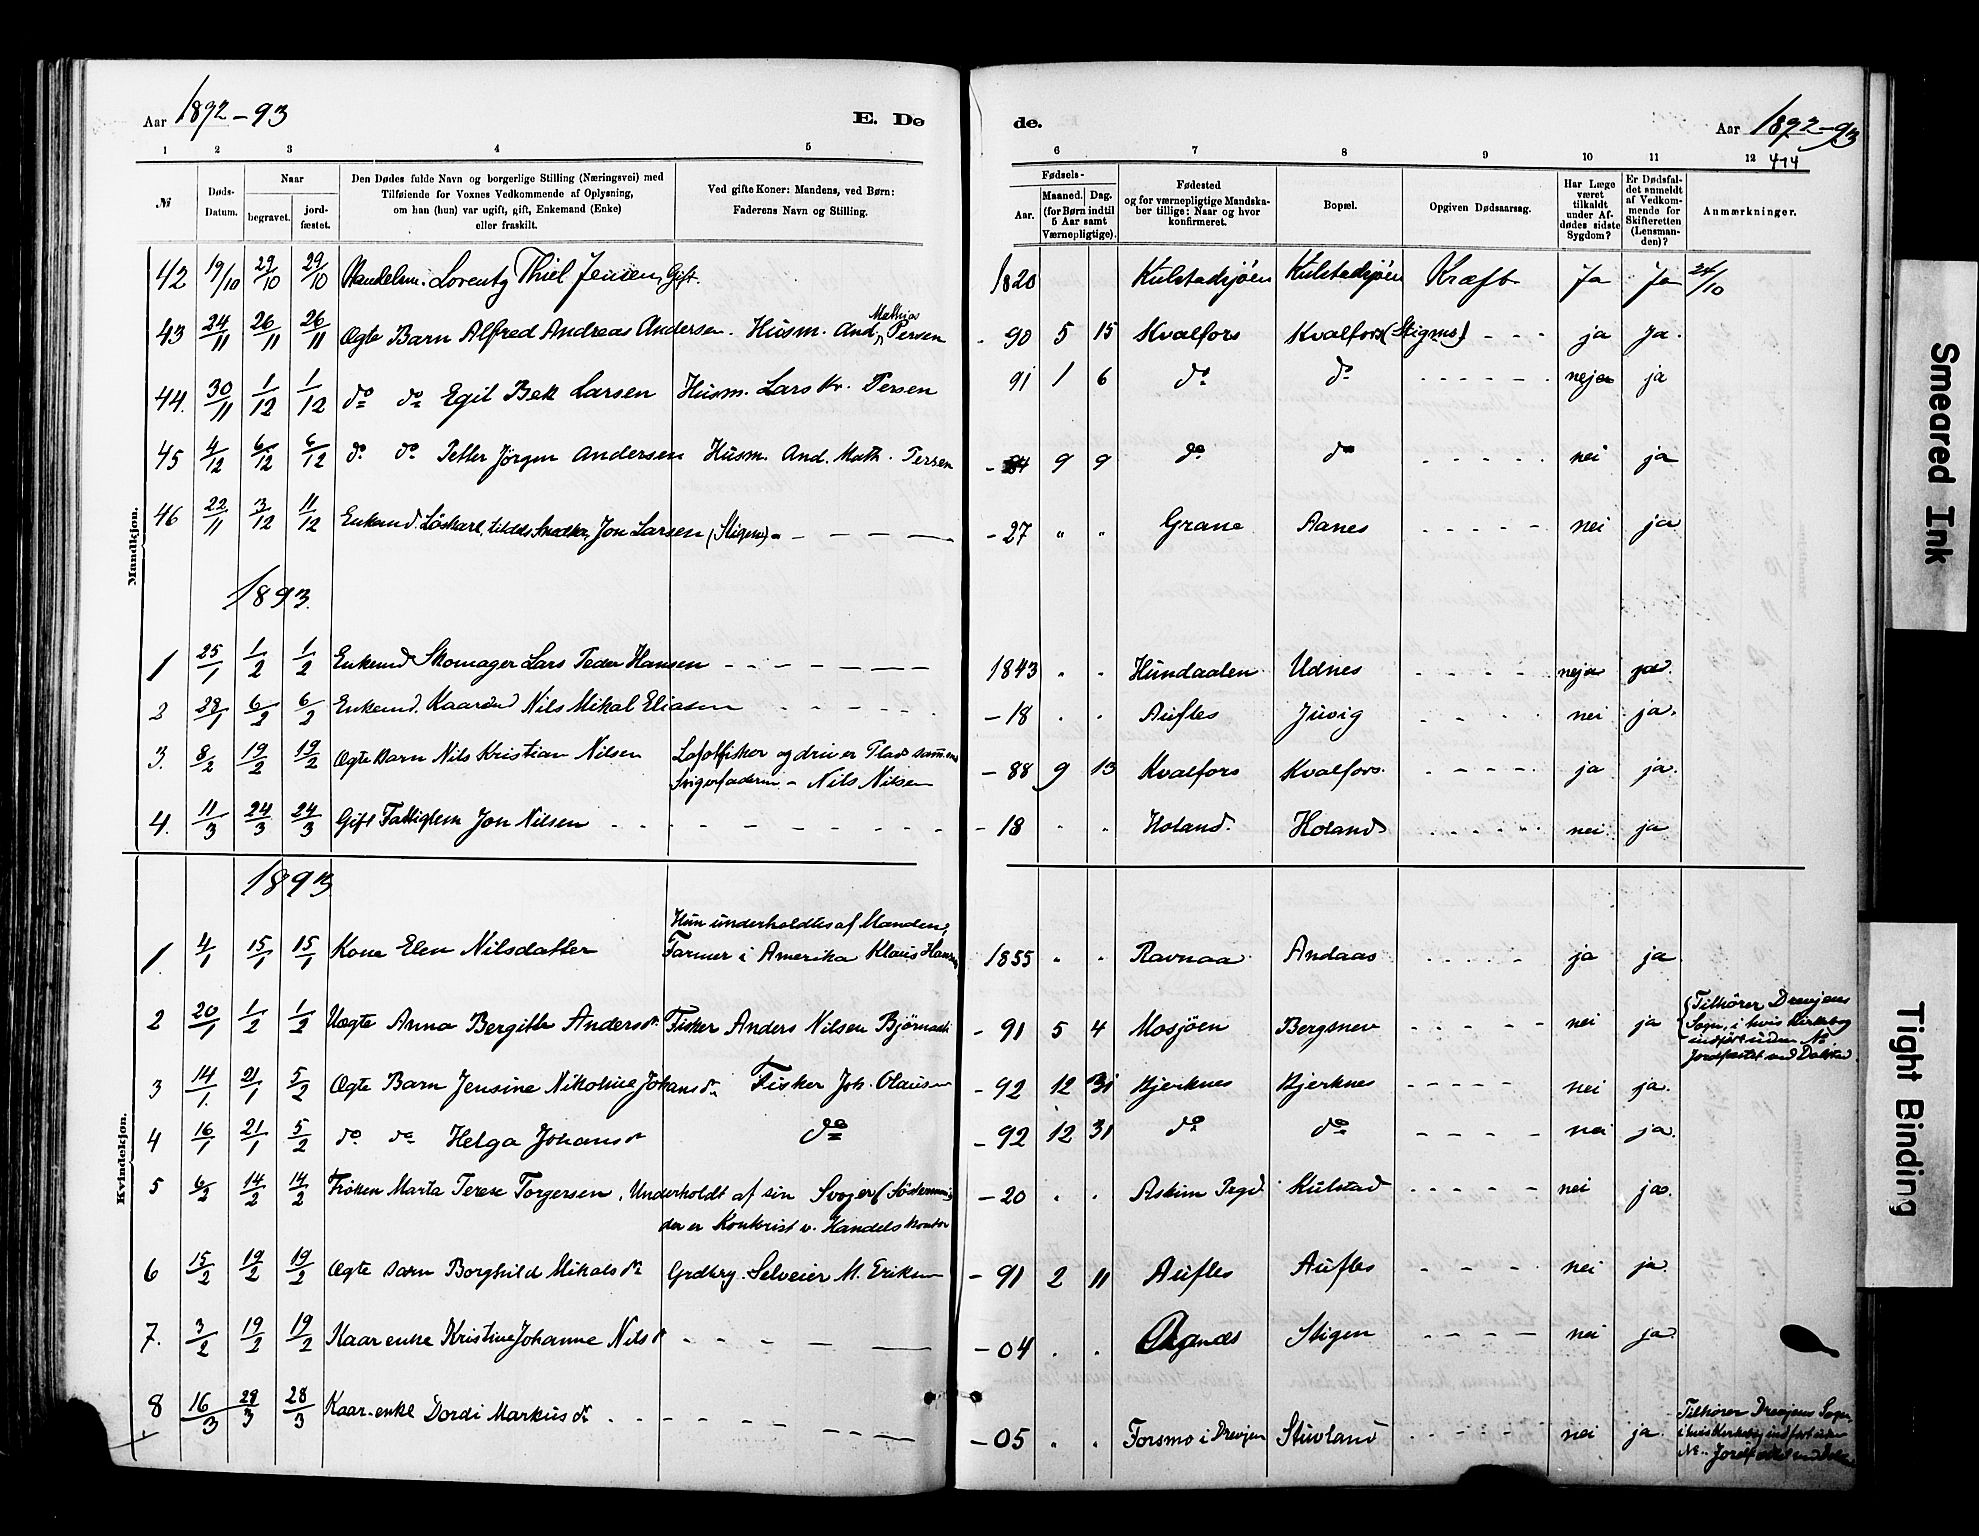 Aar 1892-93
E. Dø
de.
Aar 1892-93
414
1 2 3 4 5 6 7 8 9 10 11 12
№
Døds-Datum.
Naar
begravet.
jord-fæstet.
Den Dødes fulde Navn og borgerlige Stilling (Næringsvei) med
Tilføiende for Voxnes Vedkommende af Oplysning,
om han (hun) var ugift, gift, Enkemand (Enke)
eller fraskilt.
Ved gifte Koner: Mandens, ved Børn:
Faderens Navn og Stilling.
Fødsels-
Aar.
Maaned. Dag.
(for Børn indtil
5 Aar samt
Værnepligtige).
Fødested
og for værnepligtige Mandska-
ber tillige: Naar og hvor
konfirmeret.
Bopæl.
Opgiven Dødsaarsag.
Har Læge
været
tilkaldt
under Af-
dødes sidste
Sygdom?
Er Dødsfal-
det anmeldt
af Vedkom-
mende for
Skifteretten
(Lensman-
den)?
Anmærkninger.
Mandkjøn.
42 19/10 29/10 29/10 Handelsm. Lorentz Thiel Jensen, Gift. 1820 Kulstadsjøen Kulstadsjøen Kræft Ja Ja 24/10
43 24/11 26/11 26/11 Ægte Barn Alfred Andreas Andersen. Husm. And. Mathias Persen - 90 5 15 Kvalfors Kvalfors (Stigens) - - - ja Ja.
44. 30/11 1/12 1/12 do do Egil Bek Larsen Husm. Lars Kr. Persen 91 1 6 do do - - - - - ja
45 4/12 6/12 6/12 do do Petter Jørgen Andersen Husm. And. Math. Persen - 9 9 do do - - - - - nei ja
46 22/11 3/12 11/12 Enkemd. Løskarl, tildels Snedker, Jon Larsen (Stigen) - - - - - 27 " " Grane Aanes - - - - - nei ja
1893.
1 25/1 1/2 1/2 Enkemd Skomager Lars Peder Hansen - - - - - 1843 . . Hundaalen Udnes - - - - - ja
2 28/1 6/2 6/2 Enkemd. Kaarmd Nils Mikal Eliasen - - - - - 18 . . Aufles Juvig - - - - nei ja.
3. 8/2 19/2 19/2 Ægte Barn Nils Kristian Nilsen Lofotfisker og driver Plads sammen
Svigerfaderen - Nils Nilsen - 88 9 13 Kvalfors Kvalfors. - - - - - ja ja.
4. 11/3 24/3 24/3 Gift Fattiglem Jon Nilsen - - - - - 18 . . Holand. Holand - - - - - nei ja
Kvindekjøn.
1893
Hun underholdtes af Manden,
1. 4/1 15/1 15/1 Kone Elen Nilsdatter Farmer i Amerika Klaus Hansen 1855 . . Ravnaa Andaas - - - - - ja ja
2 20/1 1/2 1/2 Uægte Anna Bergitte Andersdr. Fisker Anders Nilsen - 91 5 4 Mosjøen - - - - nei ja
Tilhører Drevjens
Sogn, i hvis Kirkebog
indført uden №
3 14/1 21/1 5/2 Ægte Barn Jensine Nikoline Johansdr Fisker Joh. Olausen - 92 12 31 Kjerknes Kjerknes - - - - - nei ja.
4 16/1 21/1 5/2 do do Helga Johansdr do - 92 12 31 do do - - - - nei ja.
5 6/2 14/2 14/2 Frøken Marta Terese Torgersen, Underholdt af sin Svoger
der er Kontorist v. Handelskontor - 20 . . Askim Prgd. Kulstad - - - - - nei ja.
6 15/2 19/2 19/2 Ægte Barn Borghild Mikalsdr Grdbrg. Selveier M. Eriksen - 91 2 11 Aufles Aufles - - - nei ja.
7. 3/2 19/2 19/2 Kaarenke Kristine Johanne Nilsdr - - - - - 04 . . Stigen - - - - - nei ja.
8 16/3 28/3 28/3 Kaar-enke Dordi Markusdr - - - - - 05 . . Forsmo i Drevjen Stuvland - - - - nei ja.
Tilhører Drevjens Sogn,
i hvis Kirkebog indført uden
№.
Smeared Ink
Tight Binding